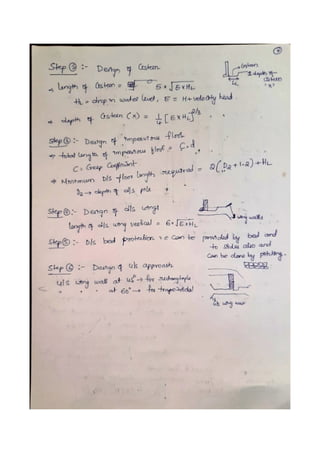 Step ③ :- Design of Cistern
→ length of Cistern = 5 × √(E × HL)
HL = drop in water level, E = H + velocity head
→ depth of Cistern (X) = 1/4 [E × HL]^2/3
Cistern
depth of
Cistern
'X'
Lc
Step ④ :- Design of impervious floor
→ total length of impervious floor = C.d
C = Creep Coefficient
→ Minimum D/s floor length required = 2(D2 + 1.2) + HL
D2 → depth of d/s pile
Step ⑤ :- Design of d/s wings
length of d/s wing vertical = 6 × √(E × HL)
wing walls
Step ⑤ :- D/s bed protection → can be provided by bed and
to slides also and
can be done by pitching.
Step ⑥ :- Design of u/s approach
u/s wing wall at 45° → for rectangle
" " at 60° → for trapezoidal
u/s wing wall